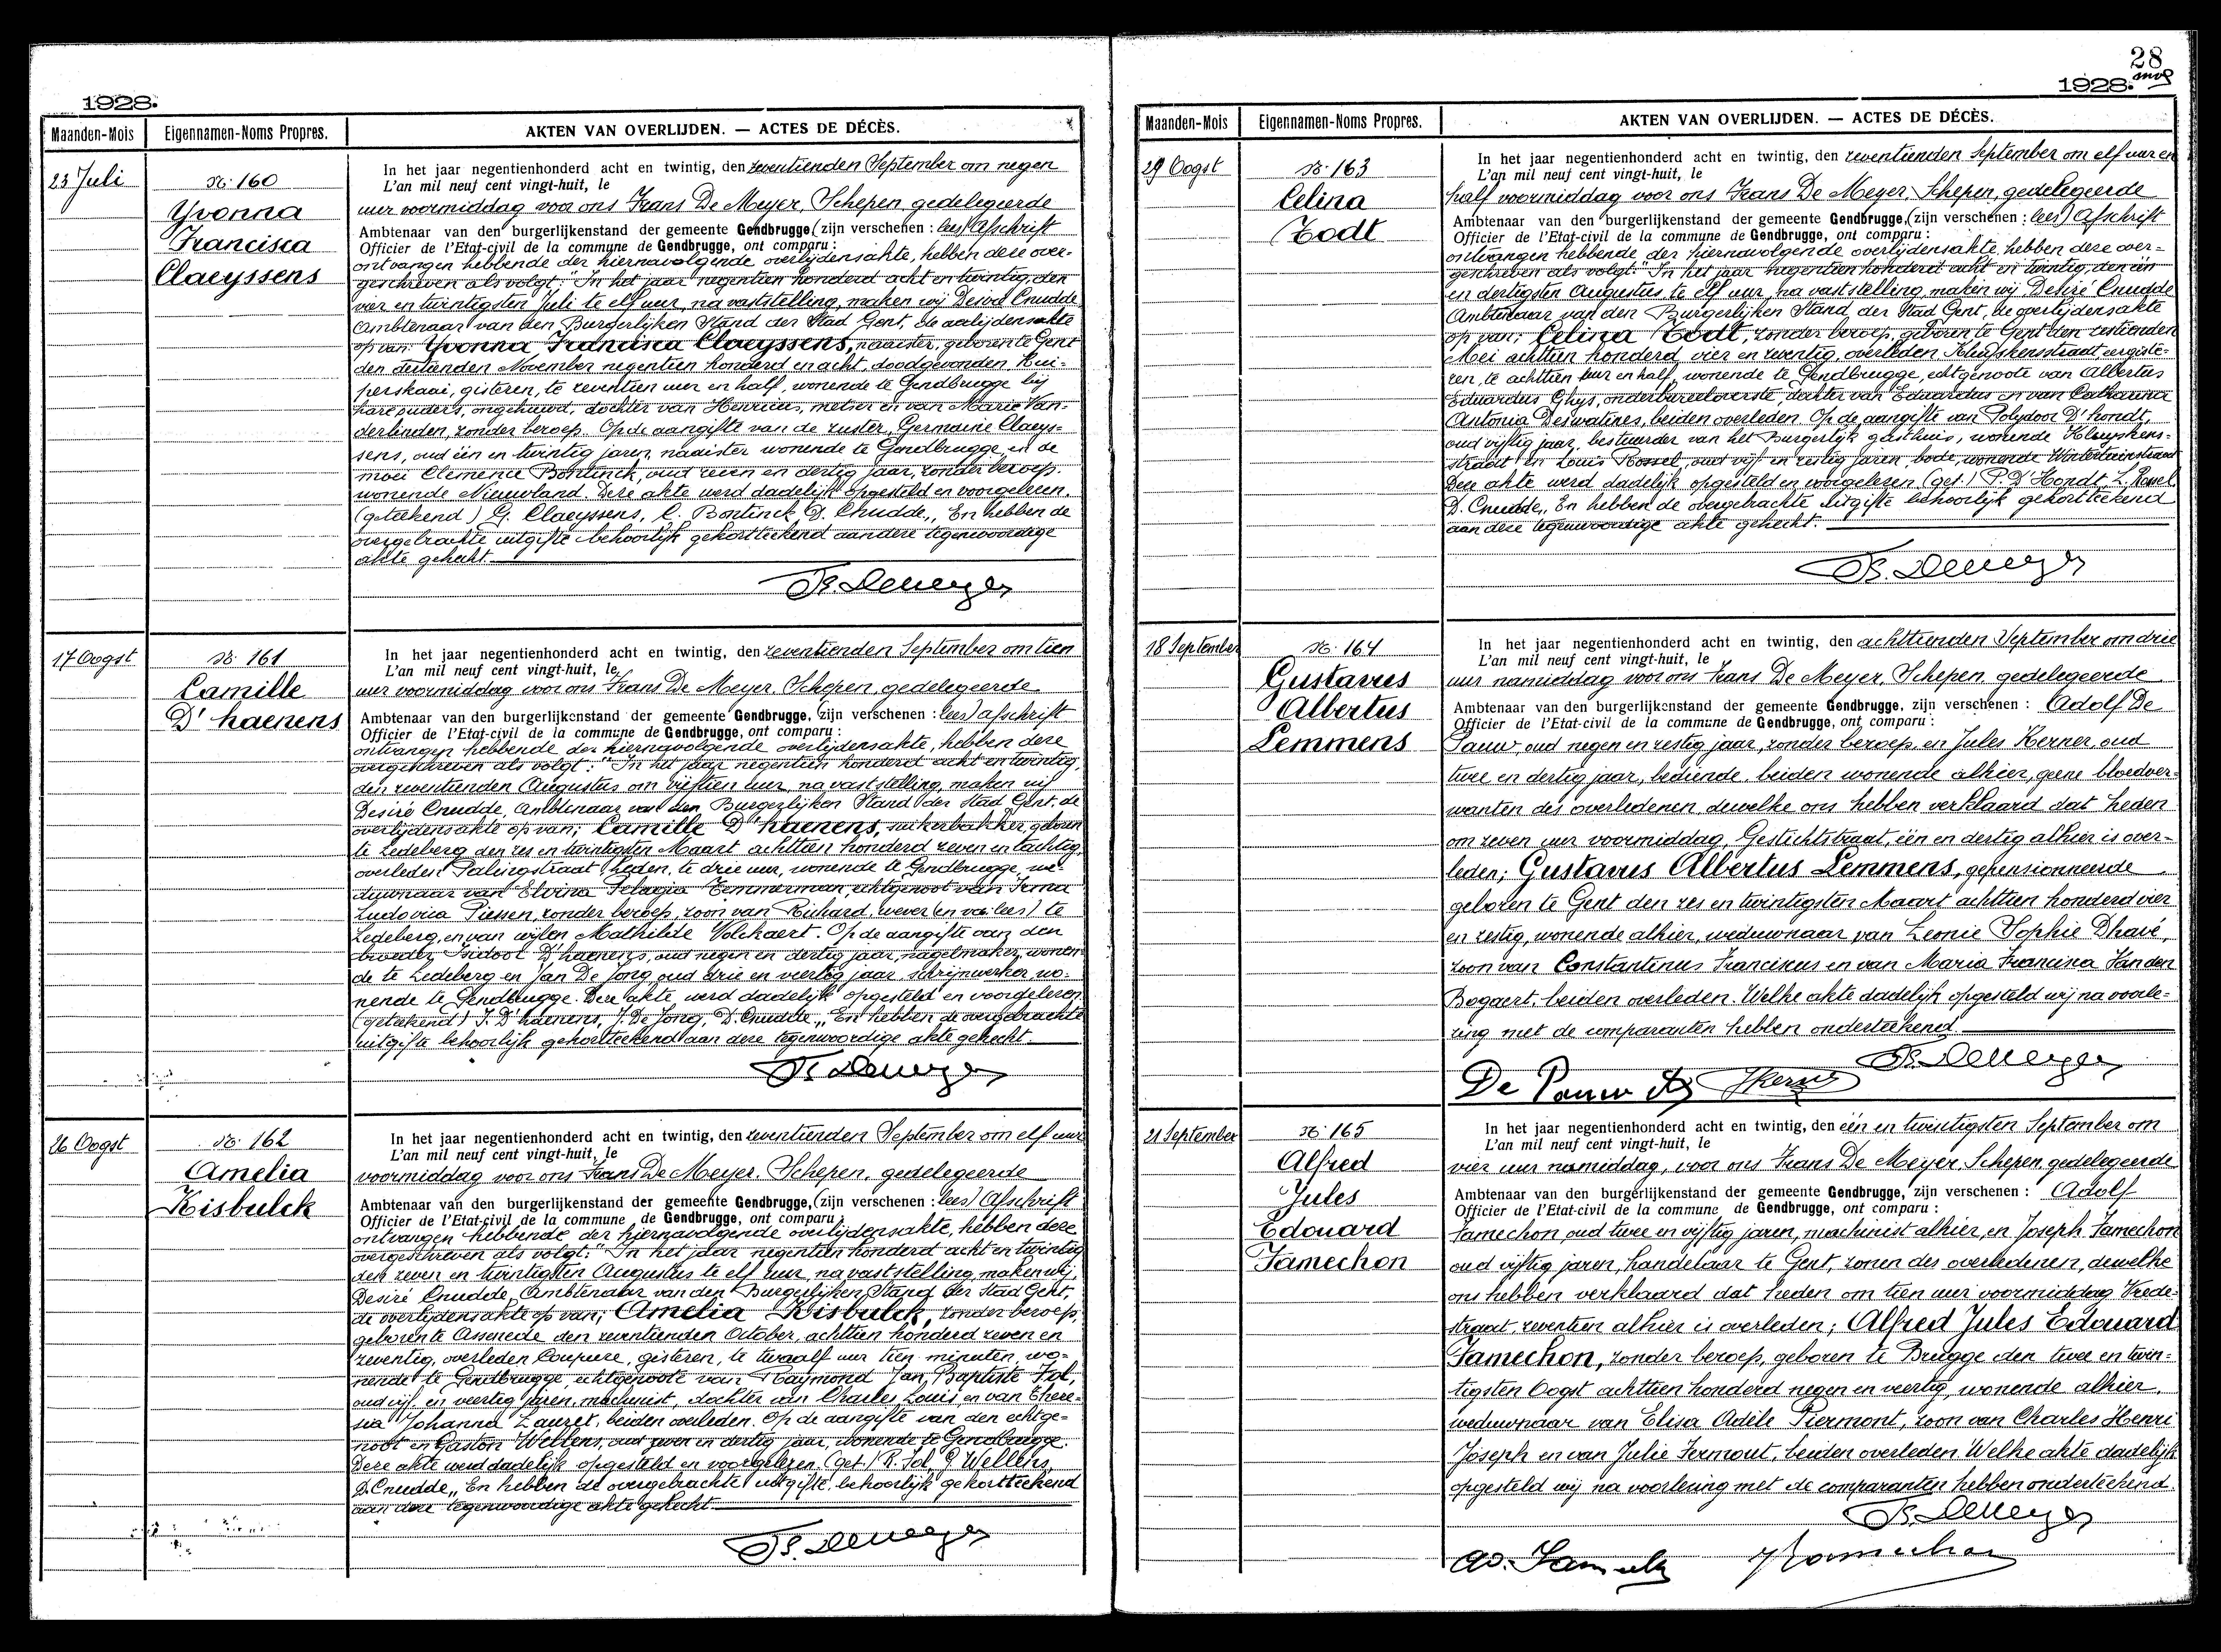 1928.
Maanden-Mois
Eigennamen-Noms Propres.
AKTEN VAN OVERLIJDEN. — ACTES DE DÉCÈS.
23 Juli
No 160
Yvonna
Francisca
Claeyssens
In het jaar negentienhonderd acht en twintig, den zeventienden September om negen
L'an mil neuf cent vingt-huit, le
uur voormiddag voor ons Frans De Meyer, Schepen, gedelegeerde
Ambtenaar van den burgerlijkenstand der gemeente Gendbrugge, (zijn verschenen : lees) Afschrift
Officier de l'Etat-civil de la commune de Gendbrugge, ont comparu :
ontvangen hebbende der hiernavolgende overlijdensakte, hebben deze over-
geschreven als volgt: "In het jaar negentien honderd acht en twintig, den
vier en twintigsten Juli te elf uur, na vaststelling, maken wij Desiré Cnudde
Ambtenaar van den Burgerlijken Stand der Stad Gent, de overlijdensakte
op van: Yvonna Francisca Claeyssens, naaister, geboren te Gent
den dertienden November negentien honderd en acht, doodgevonden Kui-
perskaai, gisteren, te zeventien uur en half, wonende te Gendbrugge bij
hare ouders, ongehuwd, dochter van Henricus, metser en van Marie Van-
derlinden, zonder beroep. Op de aangifte van de zuster, Germaine Claeys-
sens, oud één en twintig jaren, naaister wonende te Gendbrugge, en de
moei Clemence Bontinck, oud zeven en dertig jaar, zonder beroep.
wonende Nieuwland. Deze akte werd dadelijk opgesteld en voorgelezen.
(geteekend) G. Claeyssens, C. Bontinck, D. Cnudde,, En hebben de
overgebrachte uitgifte behoorlijk gekortteekend aan deze tegenwoordige
akte gehecht.
Fs. Demeyer
17 Oogst
No 161
Camille
D'haenens
In het jaar negentienhonderd acht en twintig, den zeventienden September om tien
L'an mil neuf cent vingt-huit, le
uur voormiddag voor ons Frans De Meyer, Schepen, gedelegeerde
Ambtenaar van den burgerlijkenstand der gemeente Gendbrugge, (zijn verschenen : lees) afschrift
Officier de l'Etat-civil de la commune de Gendbrugge, ont comparu :
ontvangen hebbende der hiernavolgende overlijdensakte, hebben deze
overgeschreven als volgt: "In het jaar negentien honderd acht en twintig,
den zeventienden Augustus om vijftien uur, na vaststelling, maken wij
Desiré Cnudde, Ambtenaar van den Burgerlijken Stand der Stad Gent, de
overlijdensakte op van; Camille D'haenens, suikerbakker, geboren
te Ledeberg den zes en twintigsten Maart achttien honderd zeven en tachtig,
overleden Palingstraat heden, te drie uur, wonende te Gendbrugge, we-
duwnaar van Elvina Pelagia Temmerman, echtgenoot van Irma
Ludovica Piessen, zonder beroep, zoon van Richard, wever (en van: lees) te
Ledeberg, en van wijlen Mathilde Volckaert. Op de aangifte van den
broeder Isidoor D'haenens, oud negen en dertig jaar, nagelmaker, wonen-
de te Ledeberg en Jan De Jong oud drie en veertig jaar, schrijnwerker wo-
nende te Gendbrugge. Deze akte werd dadelijk opgesteld en voorgelezen
(geteekend) I. D'haenens, J. De Jong, D. Cnudde,, En hebben de overgebrachte
uitgifte behoorlijk gekortteekend aan deze tegenwoordige akte gehecht.
Fs. Demeyer
26 Oogst
No 162
Amelia
Kisbulck
In het jaar negentienhonderd acht en twintig, den zeventienden September om elf uur
L'an mil neuf cent vingt-huit, le
voormiddag voor ons Frans De Meyer, Schepen, gedelegeerde
Ambtenaar van den burgerlijkenstand der gemeente Gendbrugge, (zijn verschenen : lees) Afschrift
Officier de l'Etat-civil de la commune de Gendbrugge, ont comparu :
ontvangen hebbende der hiernavolgende overlijdensakte, hebben deze
overgeschreven als volgt: "In het jaar negentien honderd acht en twintig
den zeven en twintigsten Augustus te elf uur, na vaststelling, maken wij,
Desiré Cnudde, Ambtenaar van den Burgerlijken Stand der Stad Gent,
de overlijdensakte op van; Amelia Kisbulck, zonder beroep,
geboren te Assenede den zeventienden October, achttien honderd zeven en
zeventig, overleden Coupure, gisteren, te twaalf uur tien minuten, wo-
nende te Gendbrugge, echtgenoote van Raymond Jan Baptiste Fol,
oud vijf en veertig jaren, machinist, dochter van Charles Louis en van There-
sia Johanna Lauret, beiden overleden. Op de aangifte van den echtge-
noot en Gaston Wellens, oud zeven en dertig jaar, wonende te Gendbrugge.
Deze akte werd dadelijk opgesteld en voorgelezen. (get.) R. Fol, G. Wellens,
D. Cnudde,, En hebben de overgebrachte uitgifte, behoorlijk gekortteekend
aan deze tegenwoordige akte gehecht.
Fs. Demeyer
28
1928.
Maanden-Mois
Eigennamen-Noms Propres.
AKTEN VAN OVERLIJDEN. — ACTES DE DÉCÈS.
29 Oogst
No 163
Celina
Todt
In het jaar negentienhonderd acht en twintig, den zeventienden September om elf uur en
L'an mil neuf cent vingt-huit, le
half voormiddag voor ons Frans De Meyer, Schepen, gedelegeerde
Ambtenaar van den burgerlijkenstand der gemeente Gendbrugge, (zijn verschenen : lees) Afschrift
Officier de l'Etat-civil de la commune de Gendbrugge, ont comparu :
ontvangen hebbende der hiernavolgende overlijdensakte, hebben deze over-
geschreven als volgt: "In het jaar negentien honderd acht en twintig, den één
en dertigsten Augustus te elf uur, na vaststelling, maken wij, Desiré Cnudde
Ambtenaar van den Burgerlijken Stand, der Stad Gent, de overlijdensakte
op van; Celina Todt, zonder beroep, geboren te Gent den zestienden
Mei achttien honderd vier en zeventig, overleden Kluyskensstraat eergiste-
ren, te achttien uur en half, wonende te Gendbrugge, echtgenoote van Albertus
Eduardus Ghys, onderbureeloverste, dochter van Eduardus en van Catharina
Antonia Deswatines, beiden overleden. Op de aangifte van Polydoor D'hondt,
oud vijftig jaar, bestuurder van het Burgerlijk gasthuis, wonende Kluyskens-
straat en Louis Rossel, oud vijf en zestig jaren, bode, wonende Wintertuinstraat
Deze akte werd dadelijk opgesteld en voorgelezen (get.) P. D'Hondt, L. Rossel,
D. Cnudde,, En hebben de overgebrachte uitgifte behoorlijk gekortteekend
aan deze tegenwoordige akte gehecht.
Fs. Demeyer
18 September
No 164
Gustavus
Albertus
Lemmens
In het jaar negentienhonderd acht en twintig, den achttienden September om drie
L'an mil neuf cent vingt-huit, le
uur namiddag voor ons Frans De Meyer, Schepen, gedelegeerde
Ambtenaar van den burgerlijkenstand der gemeente Gendbrugge, zijn verschenen : Adolf De
Officier de l'Etat-civil de la commune de Gendbrugge, ont comparu :
Pauw, oud negen en zestig jaar, zonder beroep, en Jules Kerner, oud
twee en dertig jaar, bediende, beiden wonende alhier, geene bloedver-
wanten des overledenen, dewelke ons hebben verklaard dat heden
om zeven uur voormiddag, Gestichtstraat, één en dertig alhier is over-
leden; Gustavus Albertus Lemmens, gepensionneerde,
geboren te Gent den zes en twintigsten Maart achttien honderd vier
en zestig, wonende alhier, weduwnaar van Leonie Sophie Dhavé,
zoon van Constantinus Franciscus en van Maria Francisca Van den
Bogaert, beiden overleden. Welke akte dadelijk opgesteld wij na voorle-
zing met de comparanten hebben onderteekend.
Fs. Demeyer
De Pauw Ad JKerner
21 September
No 165
Alfred
Jules
Edouard
Famechon
In het jaar negentienhonderd acht en twintig, den één en twintigsten September om
L'an mil neuf cent vingt-huit, le
vier uur namiddag, voor ons Frans De Meyer, Schepen, gedelegeerde
Ambtenaar van den burgerlijkenstand der gemeente Gendbrugge, zijn verschenen : Adolf
Officier de l'Etat-civil de la commune de Gendbrugge, ont comparu :
Famechon, oud twee en vijftig jaren, machinist alhier, en Joseph Famechon
oud vijftig jaren, handelaar te Gent, zonen des overledenen, dewelke
ons hebben verklaard dat heden om tien uur voormiddag Vrede-
straat, zeventien alhier is overleden; Alfred Jules Edouard
Famechon, zonder beroep, geboren te Brugge den twee en twin-
tigsten Oogst achttien honderd negen en veertig, wonende alhier,
weduwnaar van Elisa Adèle Piermont, zoon van Charles Henri
Joseph en van Julie Fermout, beiden overleden. Welke akte dadelijk
opgesteld wij na voorlezing met de comparanten hebben onderteekend.
Fs. Demeyer
Ad. Famech JFamechon